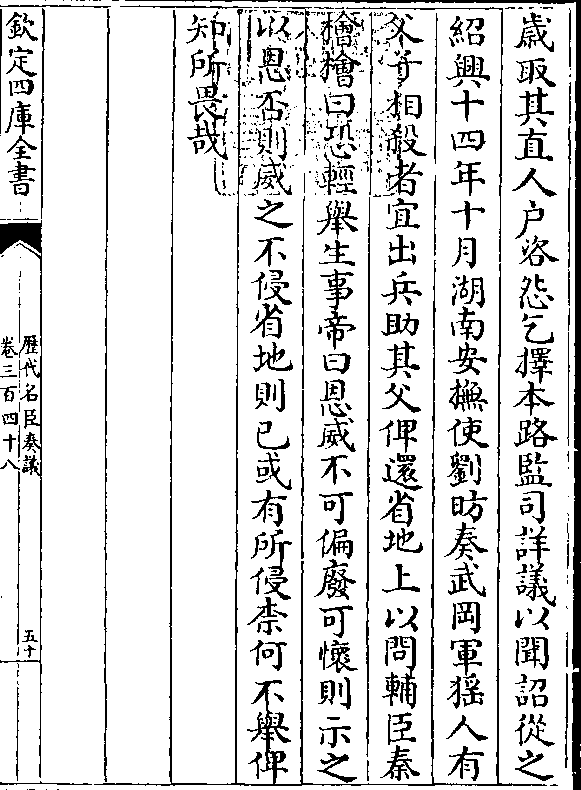 歳取其直人户咨怨乞擇本路監司詳議以聞詔從之
紹興十四年十月湖南安撫使劉昉奏武岡軍猺人有
父子相殺者宜出兵助其父俾還省地上以問輔臣秦
檜檜曰恐輕舉生事帝曰恩威不可偏廢可懷則示之
以恩否則威之不侵省地則已或有所侵柰何不舉俾
知所畏哉
欽定四庫全書
歴代名臣奏議
卷三百四十八
五十